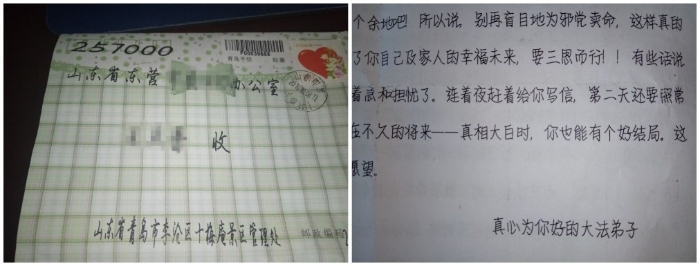 257000
山东省东营
办公室
收
山东省青岛市李沧区十梅庵景区管理处
邮政编码
个余地吧！所以说，别再盲目地为邪党卖命，这样真的
了你自己及家人的幸福未来，要三思而行！！有些话说
着急和担忧了。连着夜赶着给你写信，第二天还要照常
在不久的将来——真相大白时，你也能有个好结局。这
愿望。
真心为你好的大法弟子